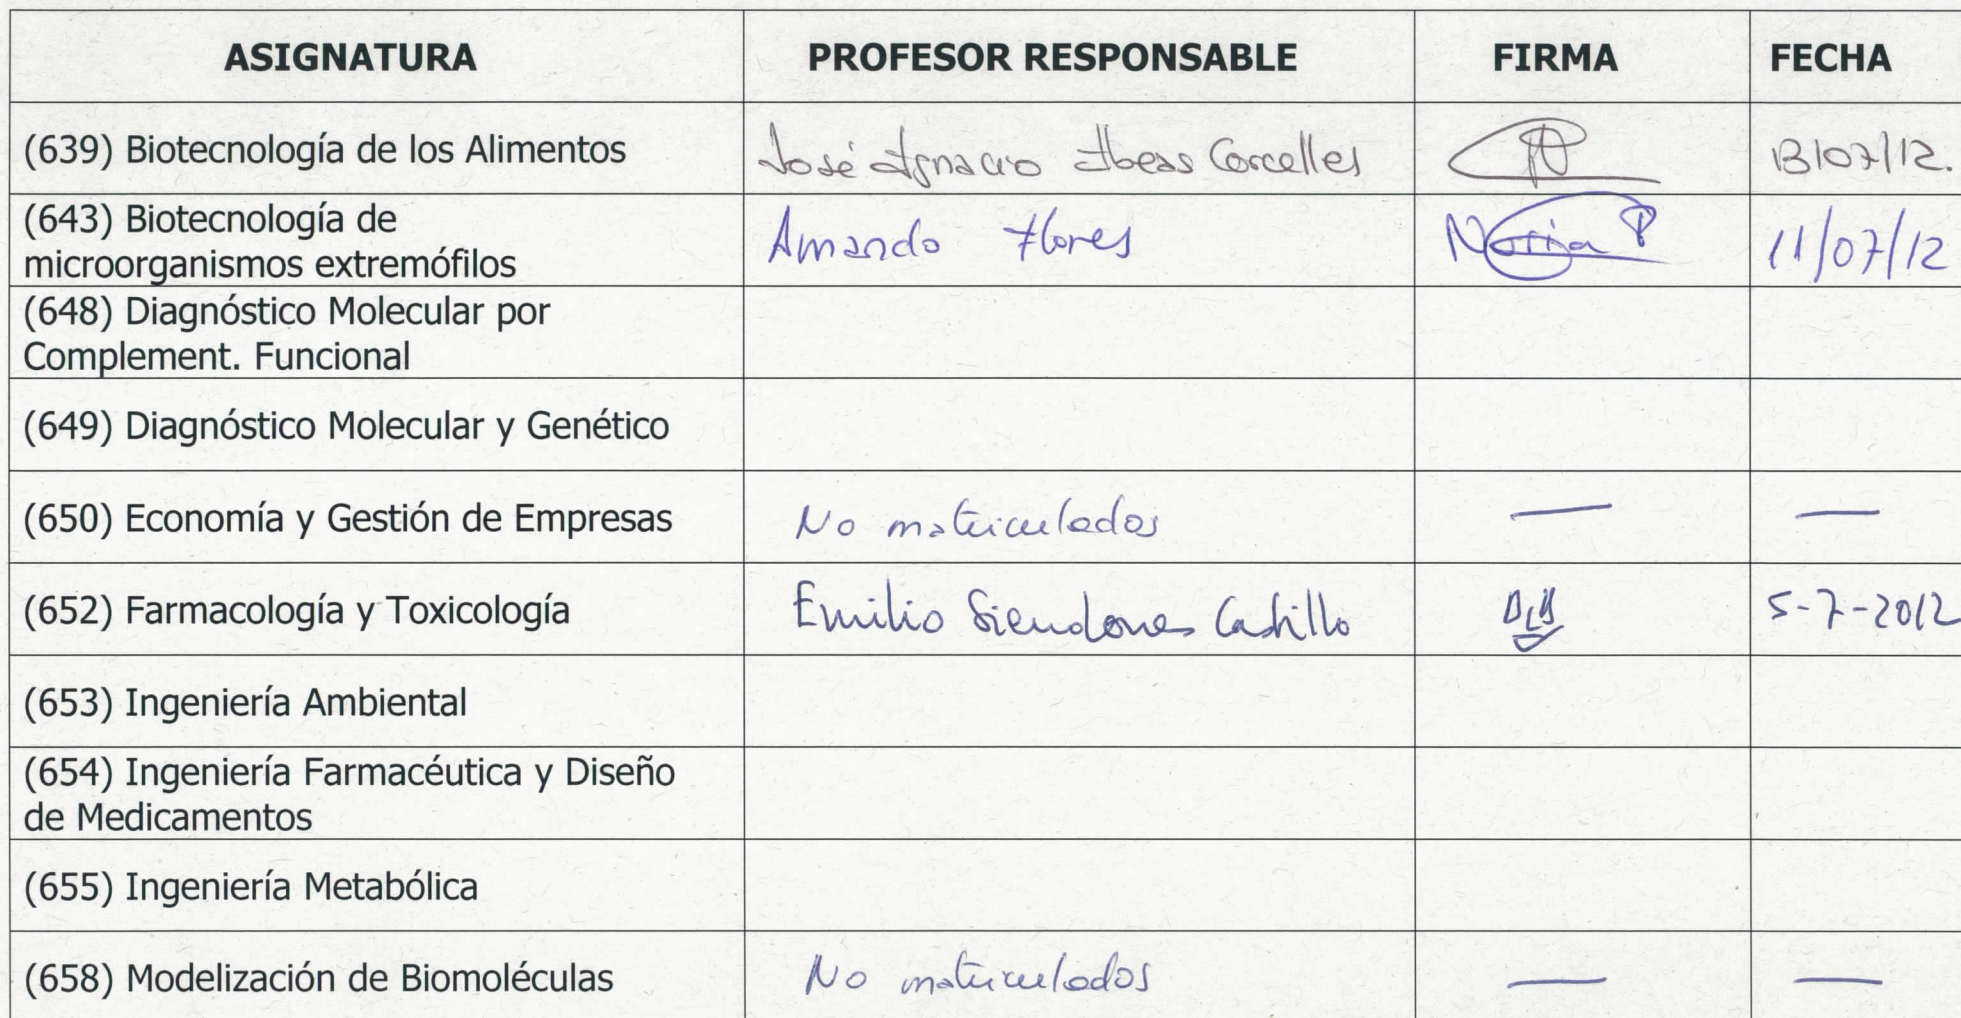 ASIGNATURA PROFESOR RESPONSABLE FIRMA FECHA
(639) Biotecnología de los Alimentos José Ignacio Ibeas Corcelles 13/07/12.
(643) Biotecnología de
microorganismos extremófilos Amando Flores 11/07/12
(648) Diagnóstico Molecular por
Complement. Funcional
(649) Diagnóstico Molecular y Genético
(650) Economía y Gestión de Empresas No matriculados — —
(652) Farmacología y Toxicología Emilio Siendones Castillo 5-7-2012
(653) Ingeniería Ambiental
(654) Ingeniería Farmacéutica y Diseño
de Medicamentos
(655) Ingeniería Metabólica
(658) Modelización de Biomoléculas No matriculados — —